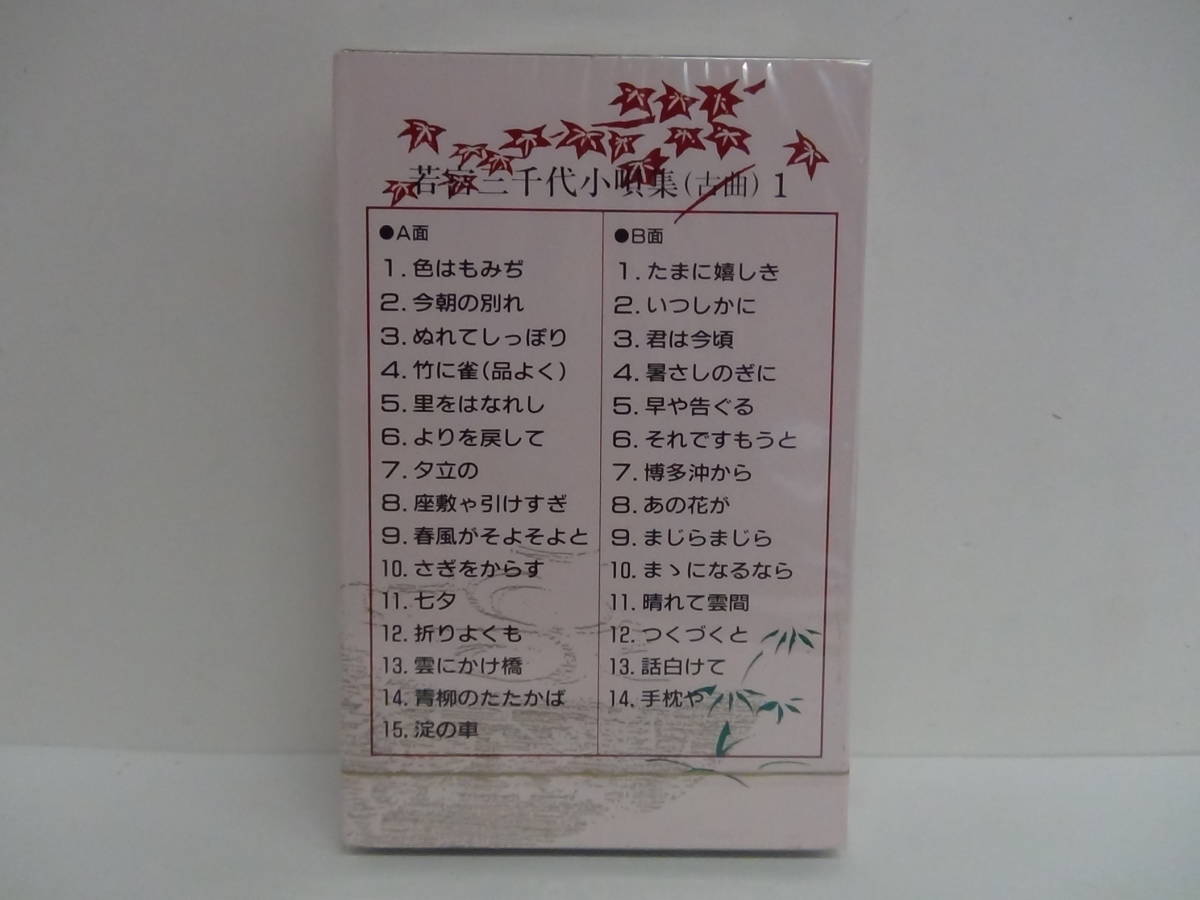 若宮三千代小唄集(古曲) 1
●A面
1.色はもみぢ
2.今朝の別れ
3.ぬれてしっぽり
4.竹に雀(品よく)
5.里をはなれし
6.よりを戻して
7.夕立の
8.座敷ゃ引けすぎ
9.春風がそよそよと
10.さぎをからす
11.七夕
12.折りよくも
13.雲にかけ橋
14.青柳のたたかば
15.淀の車
●B面
1.たまに嬉しき
2.いつしかに
3.君は今頃
4.暑さしのぎに
5.早や告ぐる
6.それですもうと
7.博多沖から
8.あの花が
9.まじらまじら
10.まゝになるなら
11.晴れて雲間
12.つくづくと
13.話白けて
14.手枕や